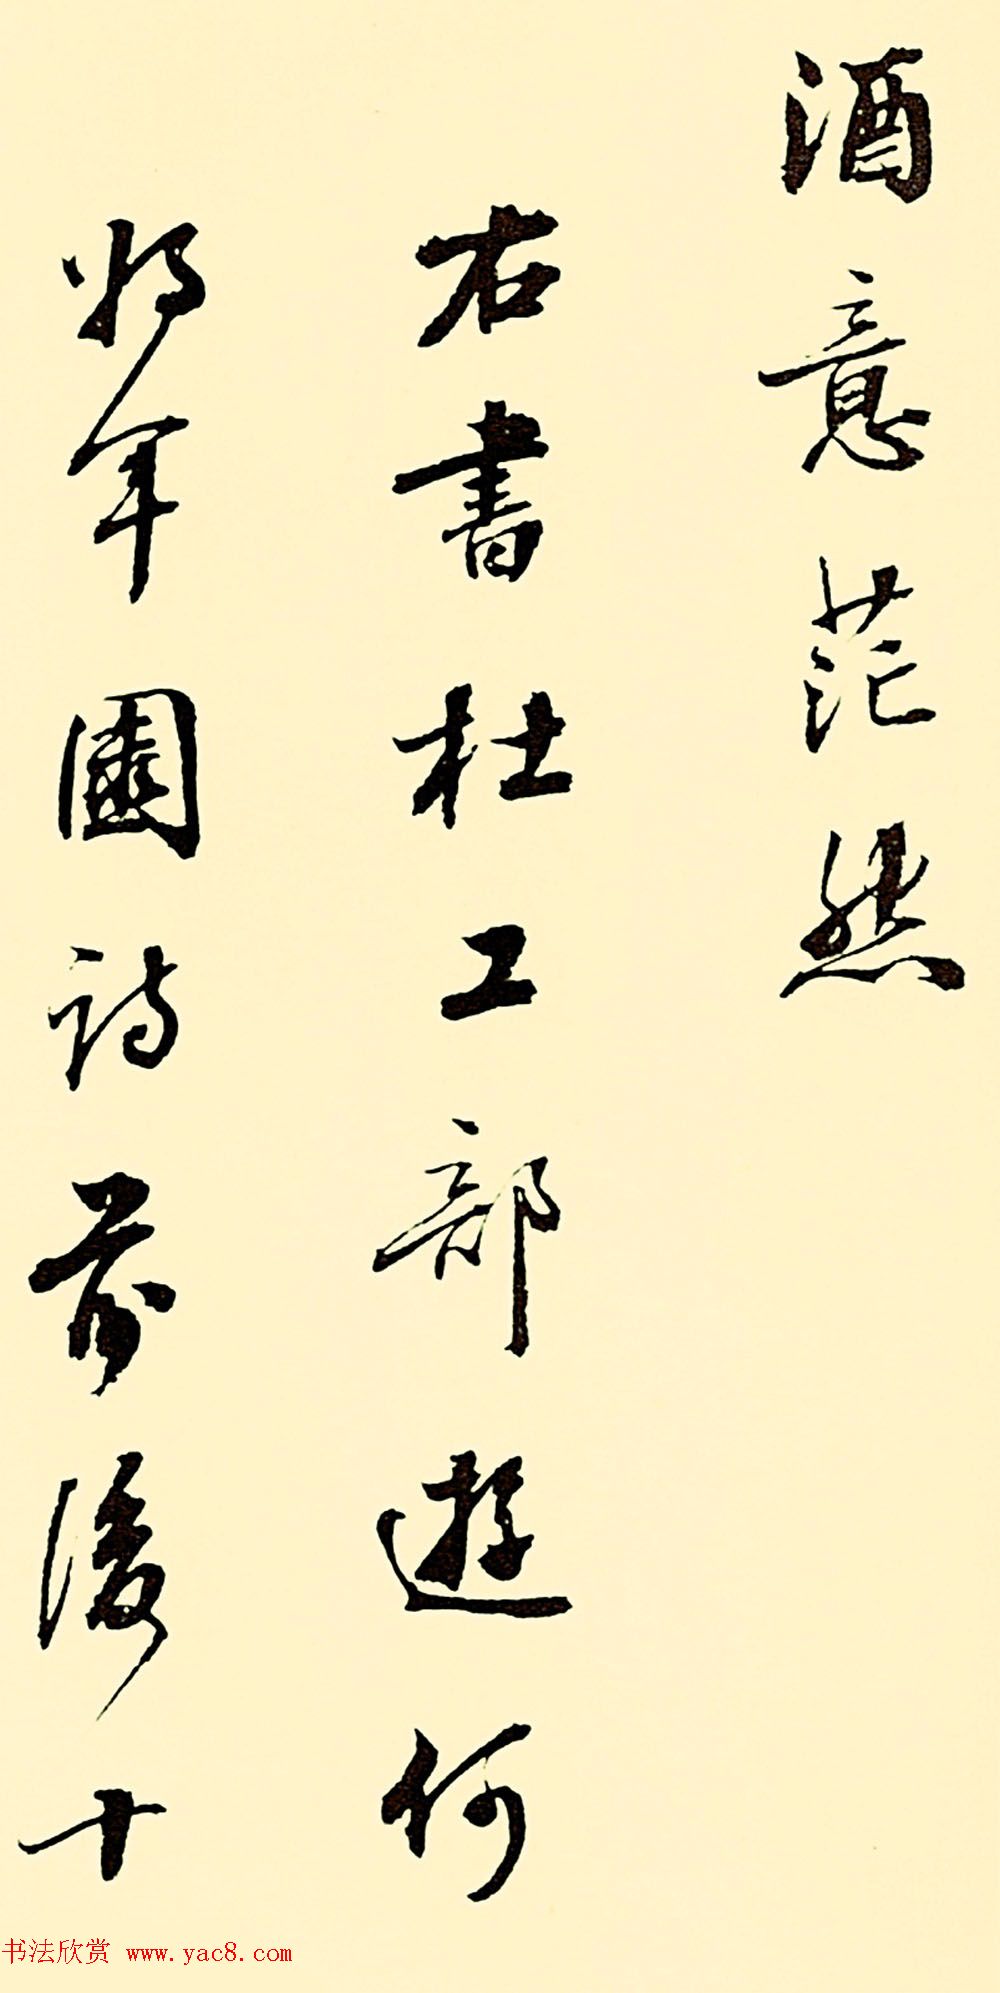 酒意茫然
右書杜工部遊何
将軍園詩前後十
书法欣赏 www.yac8.com